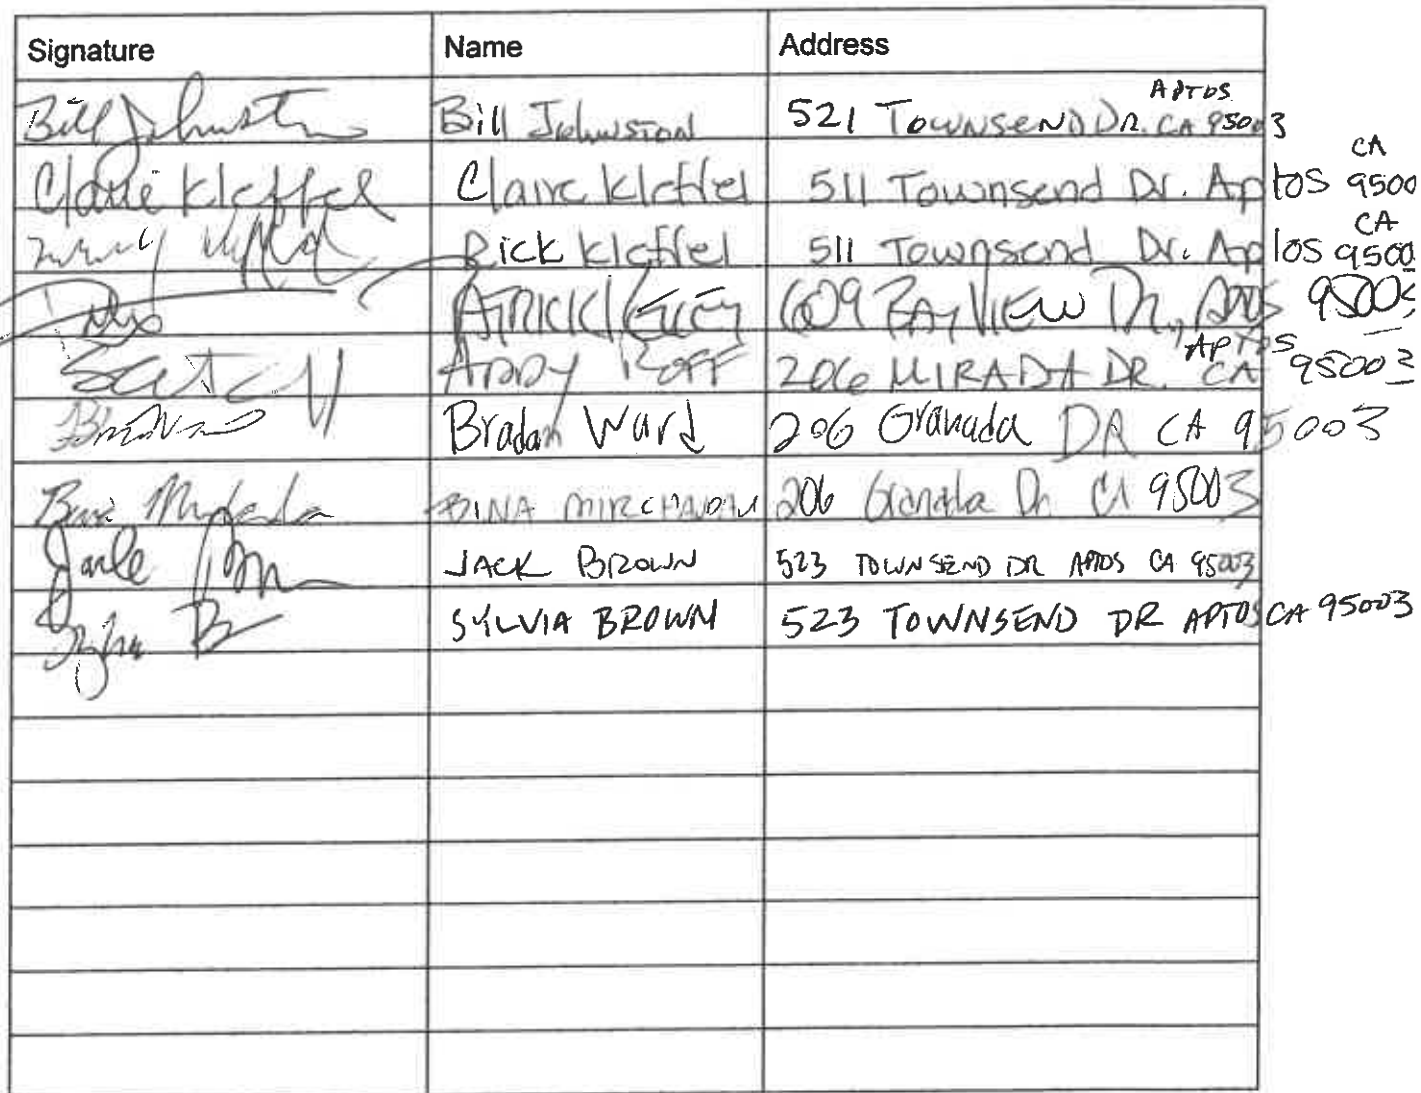 Signature Name Address
Bill Johnston Bill Johnston 521 Townsend Dr. APTOS CA 95003
Claire Kleffel Claire Kleffel 511 Townsend Dr. Aptos CA 9500
Rick Kleffel 511 Townsend Dr. Aptos CA 9500
609 BAYVIEW Dr., APTOS 95003
ANDY 206 MIRADA DR. APTOS CA 95003
Bradan Ward 206 Granada DR CA 95003
BINA MIRCHANDANI 206 Granada Dr CA 95003
Jack JACK BROWN 523 TOWNSEND DR APTOS CA 95003
Sylvia B SYLVIA BROWN 523 TOWNSEND DR APTOS CA 95003